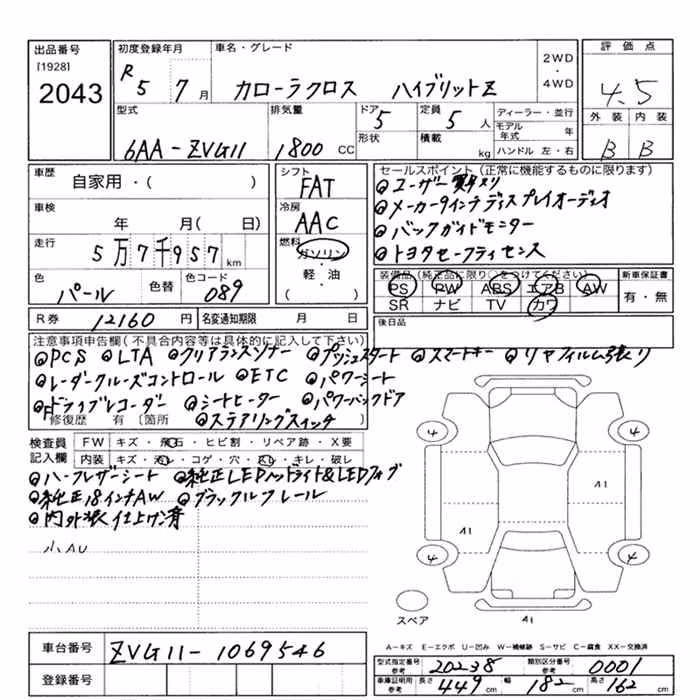 出品番号
[1928]
2043
初度登録年月
R 5 7 月
車名・グレード
カローラクロス ハイブリットZ
2WD
・
4WD
評価点
4.5
外装 内装
B B
型式
6AA-ZVG11
排気量
1800 CC
ドア 5
形状
定員 5 人
積載 kg
ディーラー・並行
モデル年式 年
ハンドル 左・右
車歴
自家用・( )
車検
年 月( 日)
走行
5万7千957 km
色
パール
色替
色コード
089
シフト
FAT
冷房
AAC
燃料
ガソリン
・
軽・油
( )
セールスポイント(正常に機能するものに限ります)
◎ユーザー買取り
◎メーカー9インチディスプレイオーディオ
◎バックガイドモニター
◎トヨタセーフティセンス
装備品(純正品に限り○をつけてください)
PS PW ABS エアB AW
SR ナビ TV カワ
新車保証書
有・無
R券 12160 円
名変通知期限 月 日
後日品
注意事項申告欄(不具合内容等は具体的に記入して下さい)
◎PCS ◎LTA ◎クリアランスソナー ◎プッシュスタート ◎スマートキー ◎リヤフィルム張り
◎レーダークルーズコントロール ◎ETC ◎パワーシート
◎Fドライブレコーダー ◎シートヒーター ◎パワーバックドア
修復歴 有 〔箇所 ◎ステアリングスイッチ
検査員記入欄
FW キズ・飛石・ヒビ割・リペア跡・X要
内装 キズ・汚レ・コゲ・穴・スレ・キレ・破レ
◎ハーフレザーシート ◎純正LEDヘッドライト&LEDフォグ
◎純正18インチAW ◎ブラックルーフレール
◎内外装仕上げ済
小AU
4 4
A1 A1
4 4
スペア
A1
A-キズ E-エクボ U-凹み W-補修跡 S-サビ C-腐食 XX-交換済
車台番号
ZVG11-1069546
登録番号
型式指定番号 参考 20238
類別区分番号 参考 0001
車庫証明用 参考 長さ 449 cm 幅 182 cm 高さ 162 cm